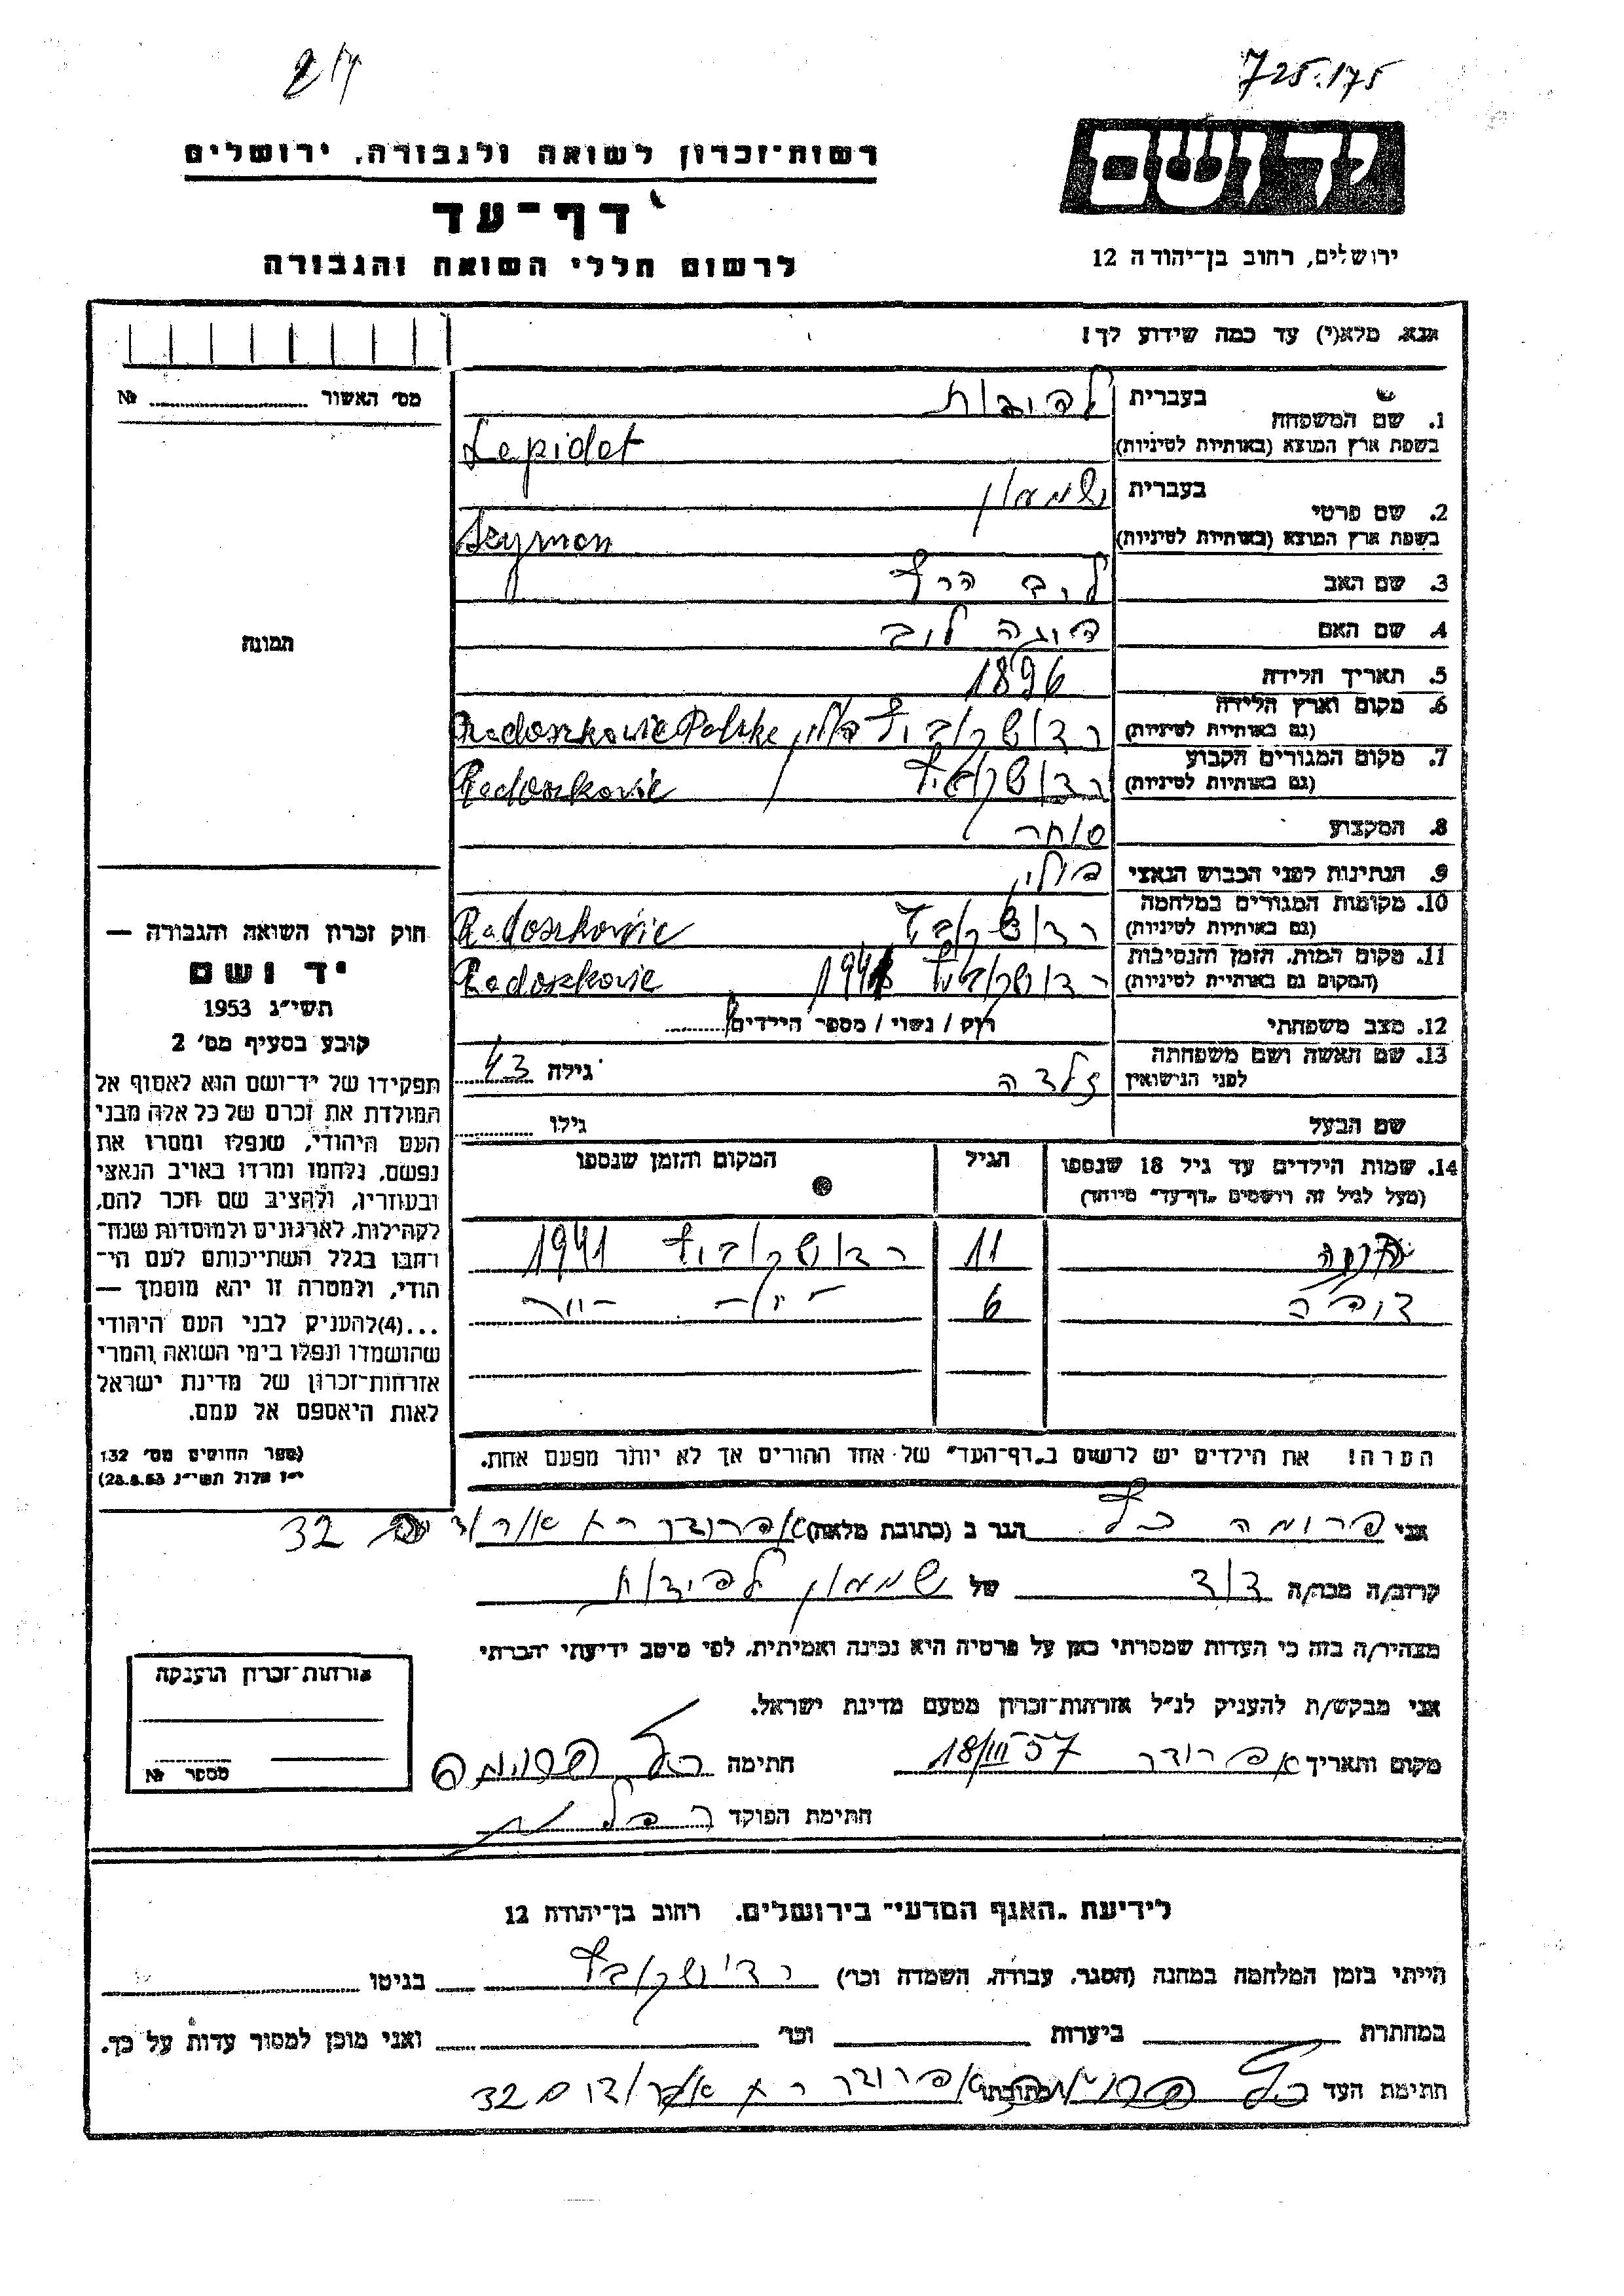 725.175
יד ושם
ירושלים, רחוב בן־יהודה 12
רשות־זכרון לשואה ולגבורה, ירושלים
דף־עד
לרשום חללי השואה והגבורה
אנא, מלא(י) עד כמה שידוע לך!
מס׳ האשור № 
1. שם המשפחה
בעברית לפידות
בשפת ארץ המוצא (באותיות לטיניות) Lepidot
2. שם פרטי
בעברית שמעון
בשפת ארץ המוצא (באותיות לטיניות) Szymon
3. שם האב ליב הרץ
4. שם האם
5. תאריך הלידה 1896
6. מקום וארץ הלידה
(גם באותיות לטיניות) רדושקוביץ פולין Radoszkowic Polske
7. מקום המגורים הקבוע
(גם באותיות לטיניות) רדושקוביץ Radoszkowic
8. המקצוע סוחר
9. הנתינות לפני הכבוש הנאצי פולין
10. מקומות המגורים במלחמה
(גם באותיות לטיניות) רדושקוביץ Radoszkowic
11. מקום המות, הזמן והנסיבות
(המקום גם באותיות לטיניות) רדושקוביץ Radoszkowic
12. מצב משפחתי רוק / נשוי / מספר הילדים
13. שם האשה ושם משפחתה
לפני הנישואין זלדה גילה 43
שם הבעל גילו
14. שמות הילדים עד גיל 18 שנספו הגיל המקום והזמן שנספו
(מעל לגיל זה רושמים „דף־עד״ מיוחד)
11 רדושקוביץ 1941
6
הערה! את הילדים יש לרשום ב„דף־העד״ של אחד ההורים אך לא יותר מפעם אחת.
תמונה
חוק זכרון השואה והגבורה —
יד ושם
תשי״ג 1953
קובע בסעיף מס׳ 2
תפקידו של יד־ושם הוא לאסוף אל
המולדת את זכרם של כל אלה מבני
העם היהודי, שנפלו ומסרו את
נפשם, נלחמו ומרדו באויב הנאצי
ובעוזריו, ולהציב שם וזכר להם,
לקהילות, לארגונים ולמוסדות שנח־
רבו בגלל השתייכותם לעם הי־
הודי, ולמטרה זו יהא מוסמך —
...(4) להעניק לבני העם היהודי
שהושמדו ונפלו בימי השואה והמרי
אזרחות־זכרון של מדינת ישראל
לאות היאספם אל עמם.
(ספר החוקים מס׳ 132
י״ז אלול תשי״ג 28.8.53)
אני פרומה כץ הגר ב (כתובת מלאה) 32
קרוב/ה מכר/ה דוד של שמעון לפידות
מצהיר/ה בזה כי העדות שמסרתי כאן על פרטיה היא נכונה ואמיתית, לפי מיטב ידיעתי והכרתי
אני מבקש/ת להעניק לנ״ל אזרחות־זכרון מטעם מדינת ישראל.
מקום ותאריך 18/III 57 חתימה כץ פרומה
חתימת הפוקד
אזרחות־זכרון הוענקה
מספר №
לידיעת „האגף המדעי״ בירושלים, רחוב בן־יהודה 12
הייתי בזמן המלחמה במחנה (הסגר, עבודה, השמדה וכו׳) רדושקוביץ בגיטו
במחתרת ביערות וכו׳ ואני מוכן למסור עדות על כך.
חתימת העד כץ פרומה כתובתו 32